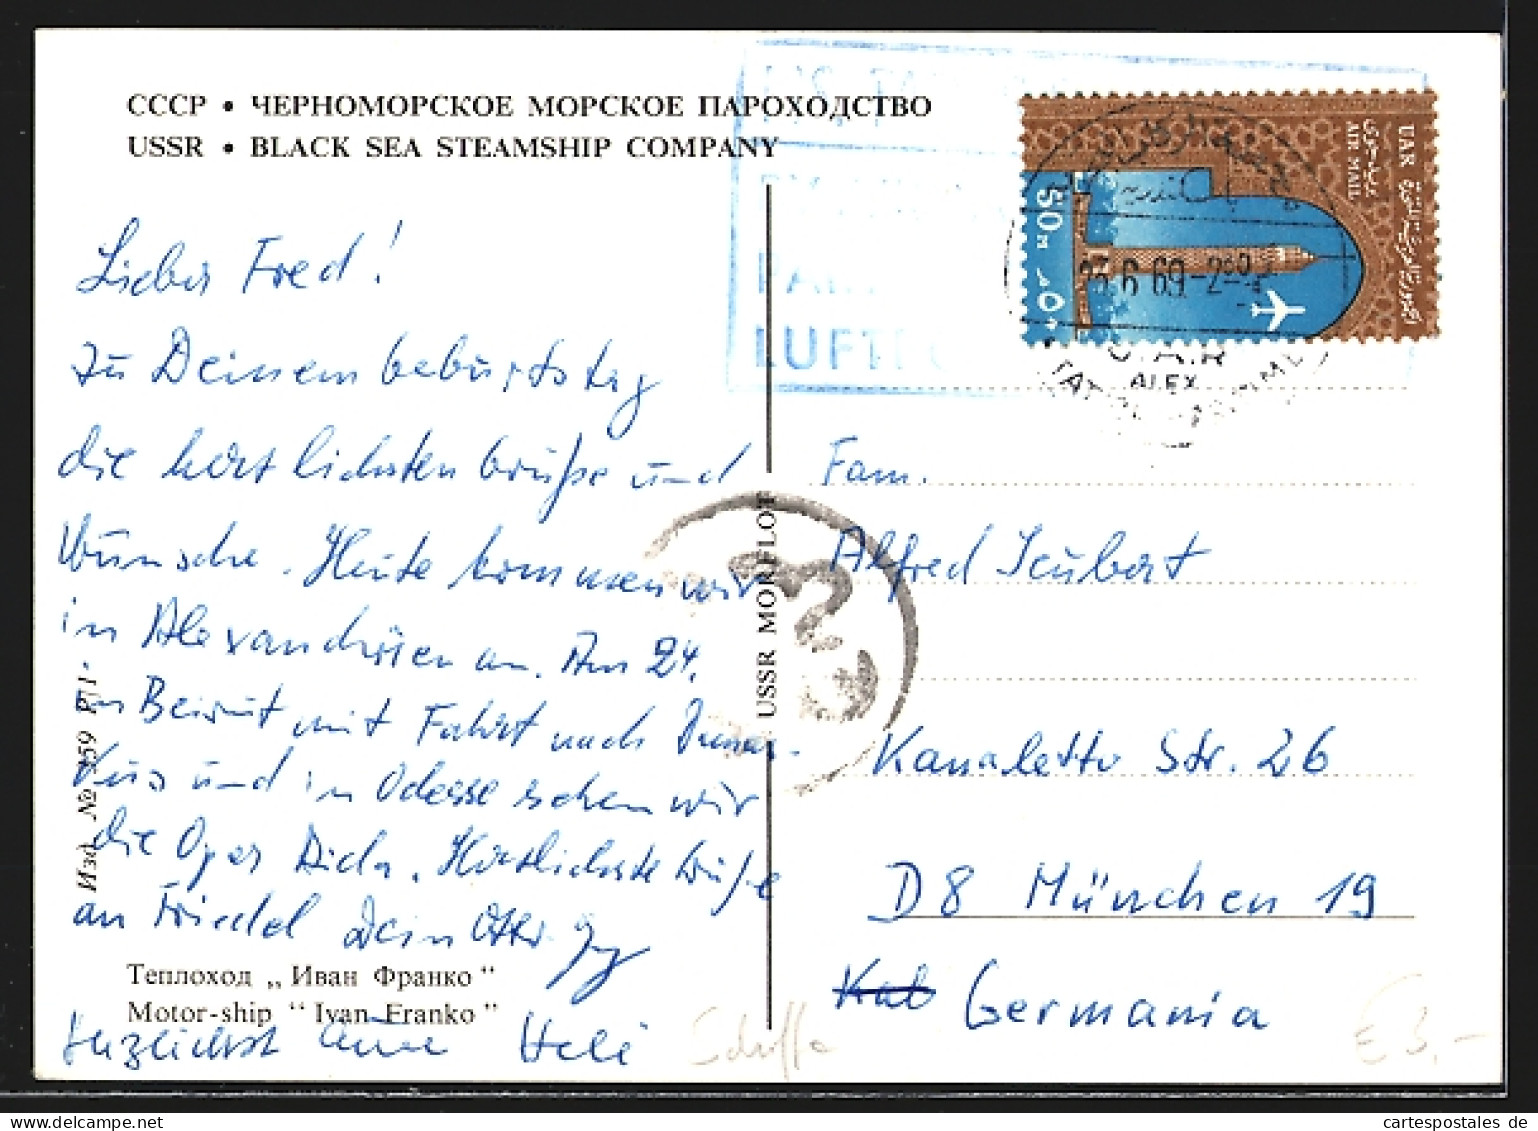 СССР • ЧЕРНОМОРСКОЕ МОРСКОЕ ПАРОХОДСТВО
USSR • BLACK SEA STEAMSHIP COMPANY
Lieber Fred!
zu Deinem Geburtstag
die herzlichsten Grüße und
Wünsche. Heute kommen wir
in Alexandrien an. Am 24.
in Beirut mit Fahrt nach Damas-
kus und in Odessa sehen wir
die Oper Aida. Herzlichste Grüße
an Friedel Dein
Теплоход „Иван Франко“
Motor-ship “Ivan Franko”
Heli
Изд. № 359
USSR MORFLOT
LUFTPO
UAR
AIR MAIL
50
٥٠
23.6.69
U.A.R
ALEX
Fam.
Alfred Seubert
Kanaletto Str. 26
D8 München 19
Germania
Schiffe
€ 3,-
Motivsammler
cartespostales de